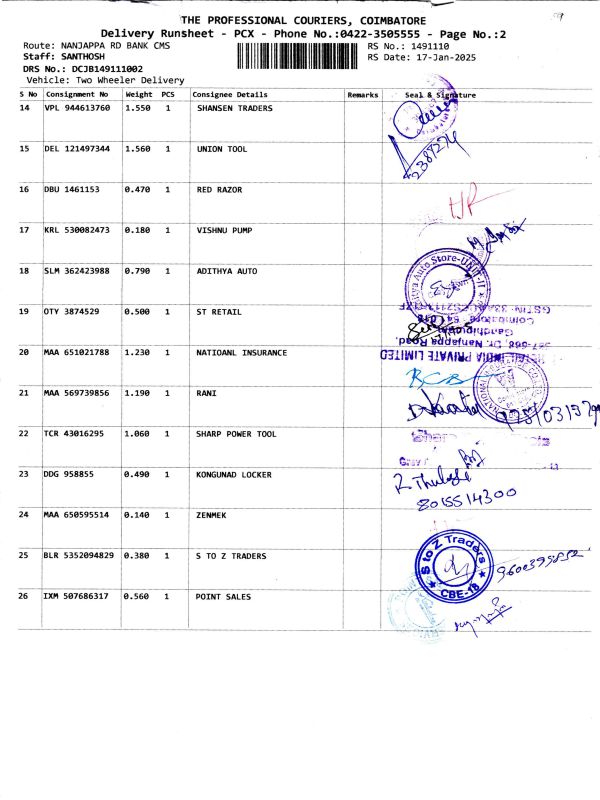 THE PROFESSIONAL COURIERS, COIMBATORE
Delivery Runsheet - PCX - Phone No.:0422-3505555 - Page No.:2
Route: NANJAPPA RD BANK CMS RS No.: 1491110
Staff: SANTHOSH RS Date: 17-Jan-2025
DRS No.: DCJB149111002
Vehicle: Two Wheeler Delivery
S No Consignment No Weight PCS Consignee Details Remarks Seal & Signature
14 VPL 944613760 1.550 1 SHANSEN TRADERS
15 DEL 121497344 1.560 1 UNION TOOL
16 DBU 1461153 0.470 1 RED RAZOR
17 KRL 530082473 0.180 1 VISHNU PUMP
18 SLM 362423988 0.790 1 ADITHYA AUTO
Auto Store-UNIT-II
19 OTY 3874529 0.500 1 ST RETAIL
GSTIN: 33
Coimbatore
Gandhipuram
Dr. Nanjappa Road.
20 MAA 651021788 1.230 1 NATIOANL INSURANCE
RETAIL INDIA PRIVATE LIMITED
RCB
21 MAA 569739856 1.190 1 RANI
22 TCR 43016295 1.060 1 SHARP POWER TOOL
23 DDG 958855 0.490 1 KONGUNAD LOCKER
8015514300
24 MAA 650595514 0.140 1 ZENMEK
25 BLR 5352094829 0.380 1 S TO Z TRADERS
S to Z Traders
CBE-18
26 IXM 507686317 0.560 1 POINT SALES